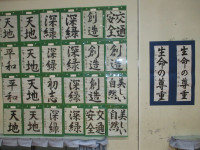 天地 天地 深緑 深緑 創造 交通安全
天地 天地 深緑 深緑 創造 交通安全
平和 天地 深緑 深緑 創造 美しい自然
平和 天地 初志 深緑 創造 美しい自然
生命の尊重
生命の尊重